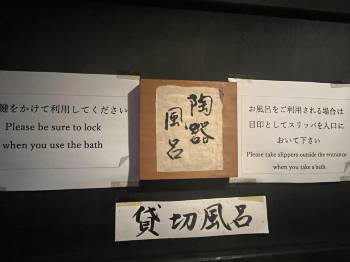 鍵をかけて利用してください
Please be sure to lock
when you use the bath
陶器
風呂
お風呂をご利用される場合は
目印としてスリッパを入口に
おいて下さい
Please take slippers outside the entrance
when you take a bath.
貸切風呂